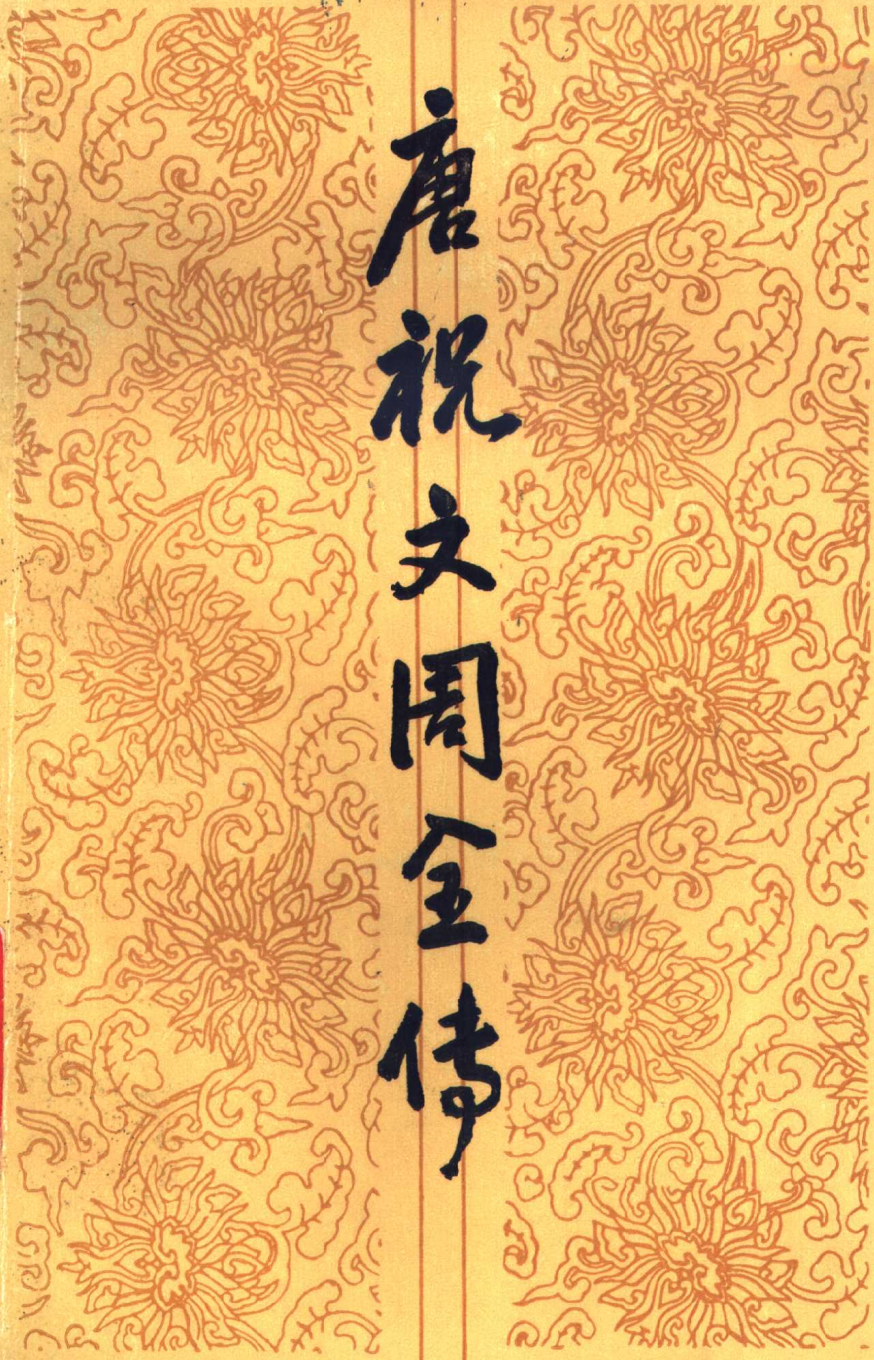 唐祝文周全傳